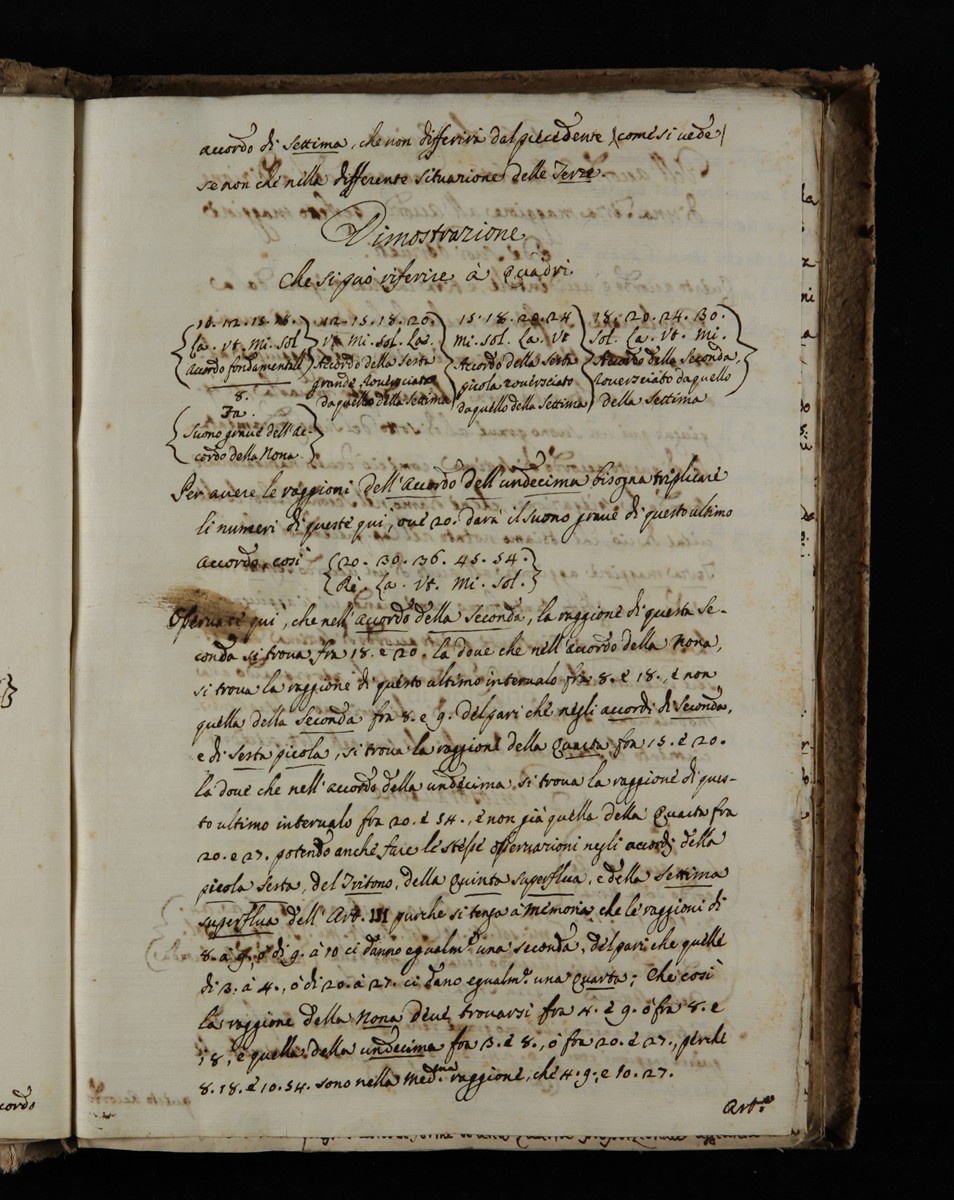 accordo di Settima, che non differirà dal precedente (come si vede)
se non che nella differente situazione delle Terze.
Dimostrazione
Che si può riferire à Quadri.
10. 12. 15. 18.
La. Vt. Mi. Sol
Accordo fondamentale
12. 15. 18. 20.
Vt. Mi. Sol. La.
Accordo della Sesta
grande rouersciato
da quello della Settima
15. 18. 20. 24
Mi. Sol. La. Vt
Accordo della Sesta
picola rouersciato
da quello della Settima
18. 20. 24. 30.
Sol. La. Vt. Mi.
Accordo della Seconda,
rouersciato da quello
della Settima
8.
Fa.
Suono graue dell'ac-
cordo della Nona.
Per auere le raggioni dell'Accordo dell'undecima bisogna triplicare
li numeri di queste qui, oue 20. darà il suono graue di questo ultimo
accordo, così
(20. 30. 36. 45. 54.)
Re. La. Vt. Mi. Sol.
Osseruate qui, che nell'accordo della Seconda, la raggione di questa se-
conda si troua fra 18. e 20. la doue che nell'accordo della Nona,
si troua la raggione di questo ultimo interualo fra 8. è 18., è non
quella della Seconda fra 8. e 9. del pari che negli accordi di Seconda,
e di Sesta picola, si troua la raggione della Quarta fra 15. è 20.
la doue che nell'accordo della undecima si troua la raggione di ques-
to ultimo interualo fra 20. è 54., è non già quella della Quarta fra
20. e 27. potendo anche fare le stesse osseruazioni negli accordi della
picola Sesta, del Tritono, della Quinta superflua, e della Settima
superflua dell'Art. III purche si tenga à memoria che le raggioni di
8. à 9. ò di 9. à 10 ci danno egualm.e una seconda, del pari che quelle
di 3. à 4., ò di 20. à 27. ci dano egualm.e una Quarta; Che così
la raggione della Nona deue trouarsi fra 4. è 9. ò fra 8. e
18, e quella della undecima fra 3. è 8., ò fra 20. è 27., perche
8. 18. è 10. 54. sono nella med.ma raggione, che 4. 9; e 10. 27.
Art.o